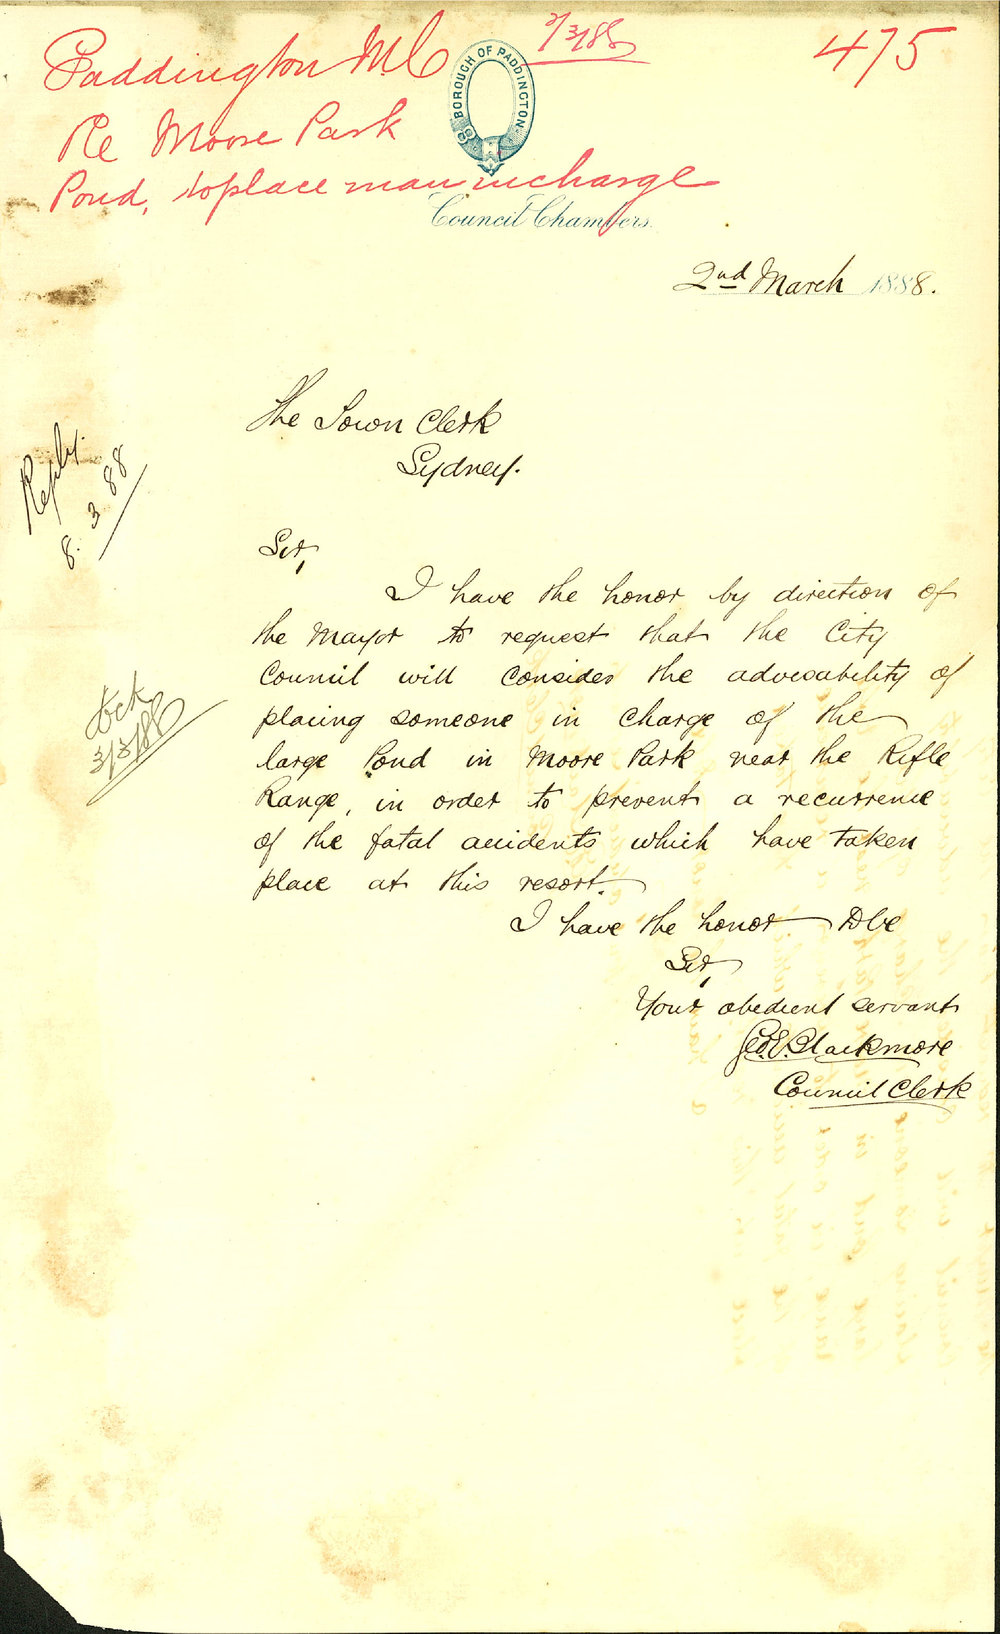 Paddington M.C 2/3/88 475
Re Moore Park
Pond, to place man in charge
BOROUGH OF PADDINGTON
Council Chambers.
2nd March 1888.
The Town Clerk
Sydney.
Reply.
8.3.88
Sir,
I have the honor by direction of
the Mayor to request that the City
Council will consider the advisability of
placing someone in charge of the
large Pond in Moore Park near the Rifle
Range, in order to prevent a recurrence
of the fatal accidents which have taken
place at this resort.
3/3/88
I have the honor to be
Sir,
Your obedient servant
Geo. E. Blackmore
Council Clerk